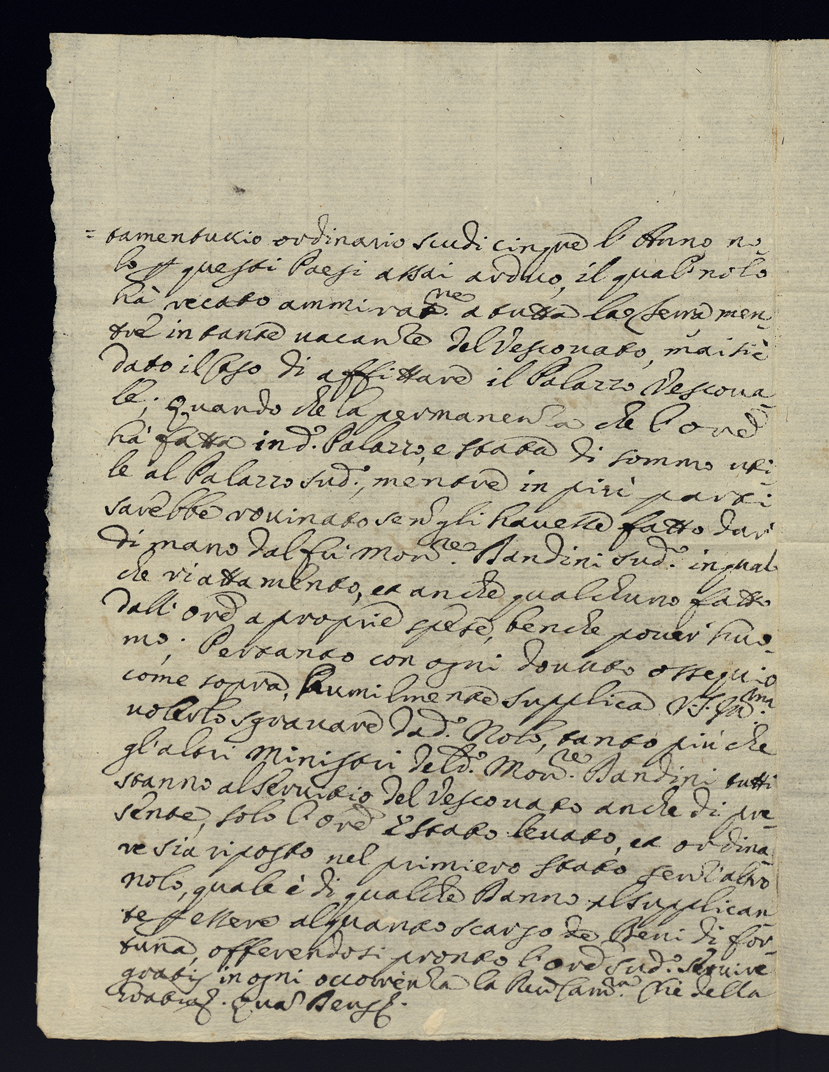 = tamentuccio ordinario scudi cinque l'Anno no-
lo p questi Paesi assai arduo, il qual nolo
hà recato ammirat.ne a tutta la Terra men-
tre in tante vacanze del Vescovato, mai si è
dato il Caso di affittare il Palazzo Vescova-
le; Quando che la permanenza che l'Ore
hà fatta in d.º Palazzo, e stata di sommo uti-
le al Palazzo sud.º, mentre in più parti
sarebbe rovinato se non gli havesse fatto dar
di mano dal fù Mon.re Bandini sud.º in qual
che riattamento, et anche qualcheuno fatto
dall'Ore a proprie spese, benche pover huo-
mo; Pertanto con ogni dovuto ossequio
come sopra, humilmente supplica V.S. Ill.ma
volerlo sgravare da d.º Nolo, tanto più che
gl'altri Ministri del d.º Mon.re Bandini tutti
stanno al servitio del Vescovato anche di pre-
sente, solo l'Ore è stato levato, et ordina-
re sia riposto nel primiero stato senz'altro
nolo, quale è di qualche Danno al supplican
te p essere alquanto scarso de Beni di for-
tuna, offerendosi pronto l'Ore sud.º servire
gratis in ogni occorrenza la Reu Cam.ra Che della
Gratia. Quas Deus